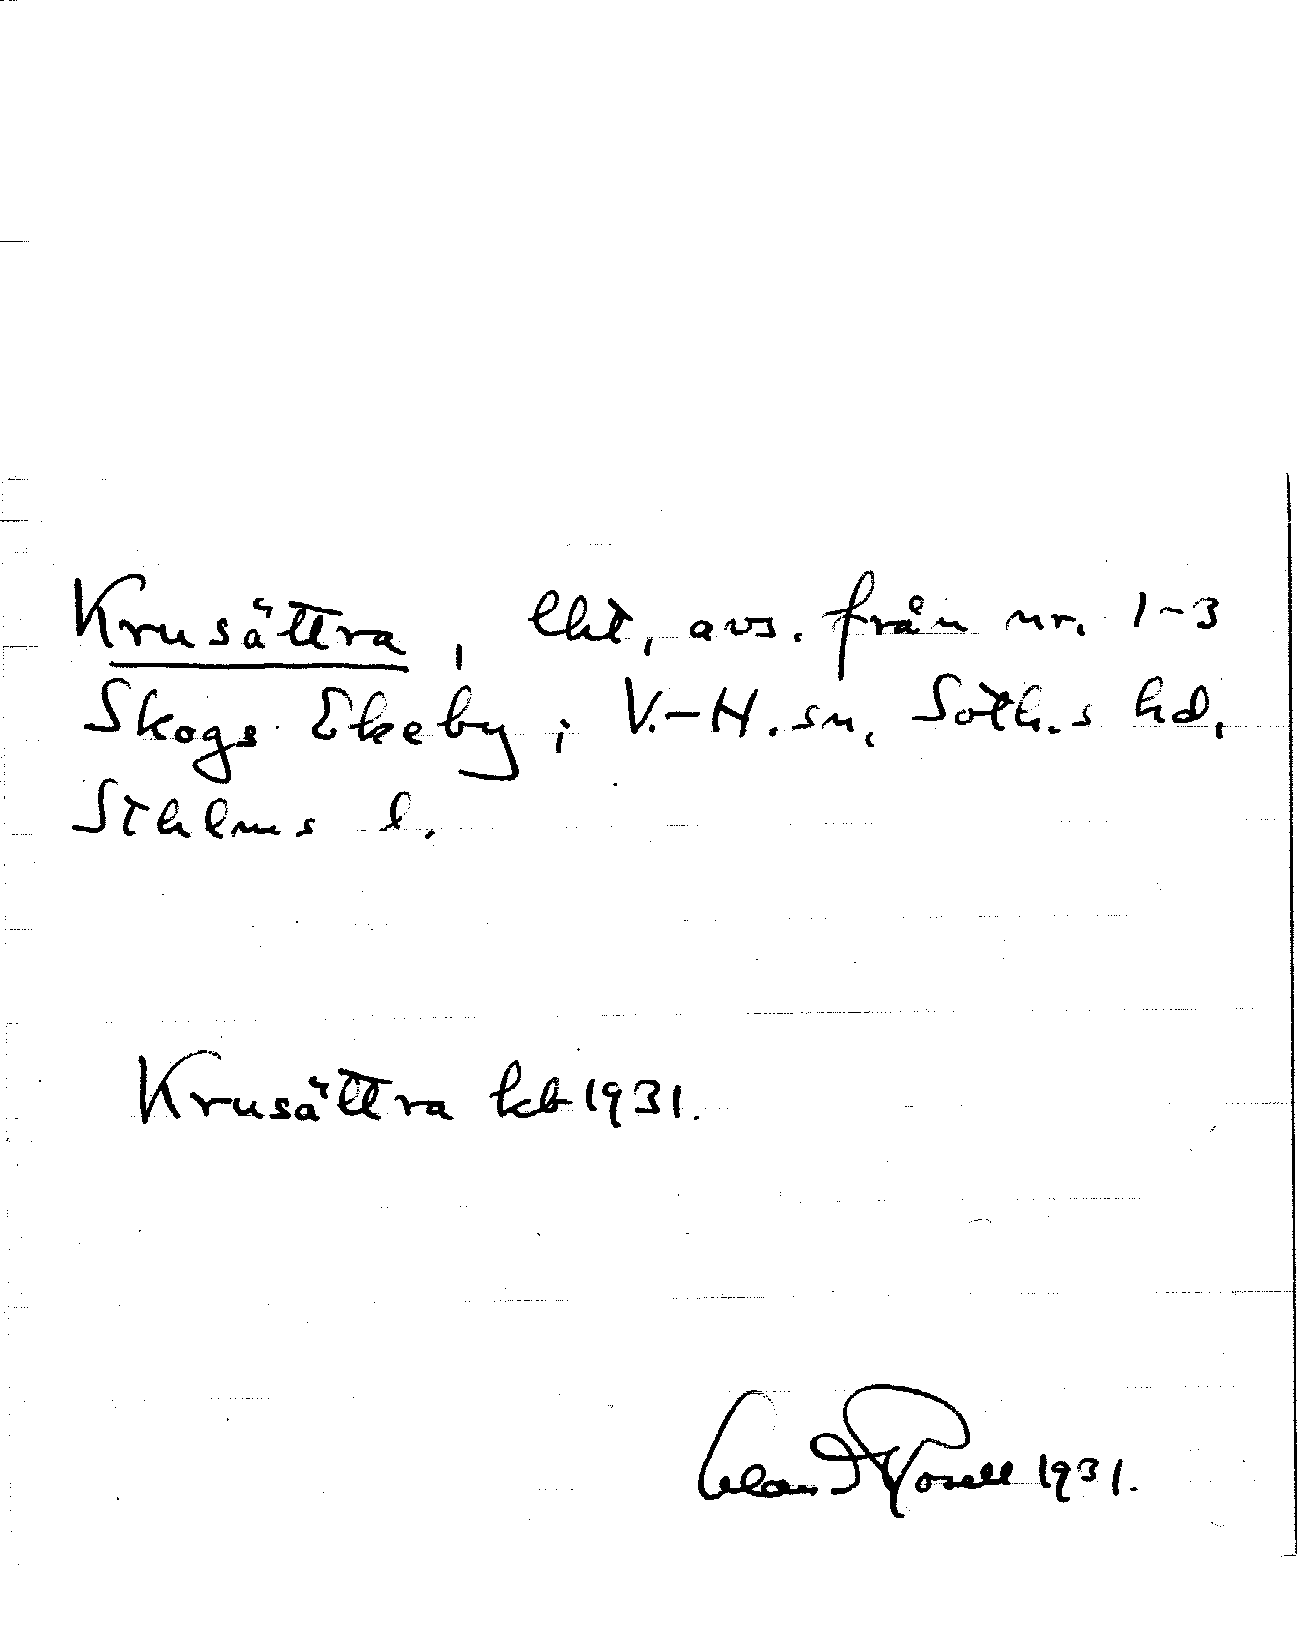 Krusättra, lht, avs. från nr. 1-3
Skogs Ekeby, V.-H. sn, Soth.s hd,
Sthlms l.
Krusättra kb 1931.
Rosell 1931.